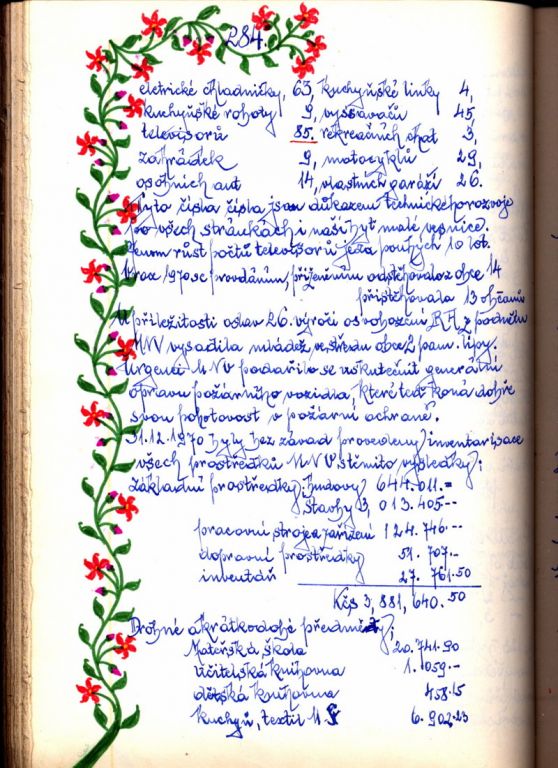 284.
eletrické chladničky, 63, kuchyňské linky 4,
kuchyňské roboty 9, vyssavačů 45,
televisorů 85. rekreačních chat 3,
zahrádek 9, motocyklů 29,
osobních aut 14, vlastních garáží 26.
Tyto čísla čísla jsou důkazem technickeho rozvoje
po všech stránkách i naší byť malé vesnice.
Jenom růst počtů televisorů je za pouhých 10 let.
V roce 1970 se provdáním, přiženěním odstěhovalo z obce 14
přistěhovala 13 občanů
U příležitosti oslav 26. výročí osvobození, RA, z podnětu
MNV vysadila mládež, ve středu obce 2 pam. lípy.
Urgencí MNV podařilo se uskutečnit generální
opravu požárního vozidla které teď koná dobře
svou pohotovost v požární ochraně.
31.12.1970 byly bez závad provedeny inventarisace
všech prostředků MNV s těmito výsledky:
Základní prostředky, budovy 644.011.=
stavby 3, 013.405--
pracovní stroje a zařízení 124.746.--
dopravní prostředky 51.707.-
inventář 27.761.50
Kčs 3,881,640.50
Drobné a krátkodobé předměty,
Mateřská škola 20.741.90
učitelská knihovna 1.059.-
dětská knihovna 458.15
kuchyň, textil M.Š 6.902.23